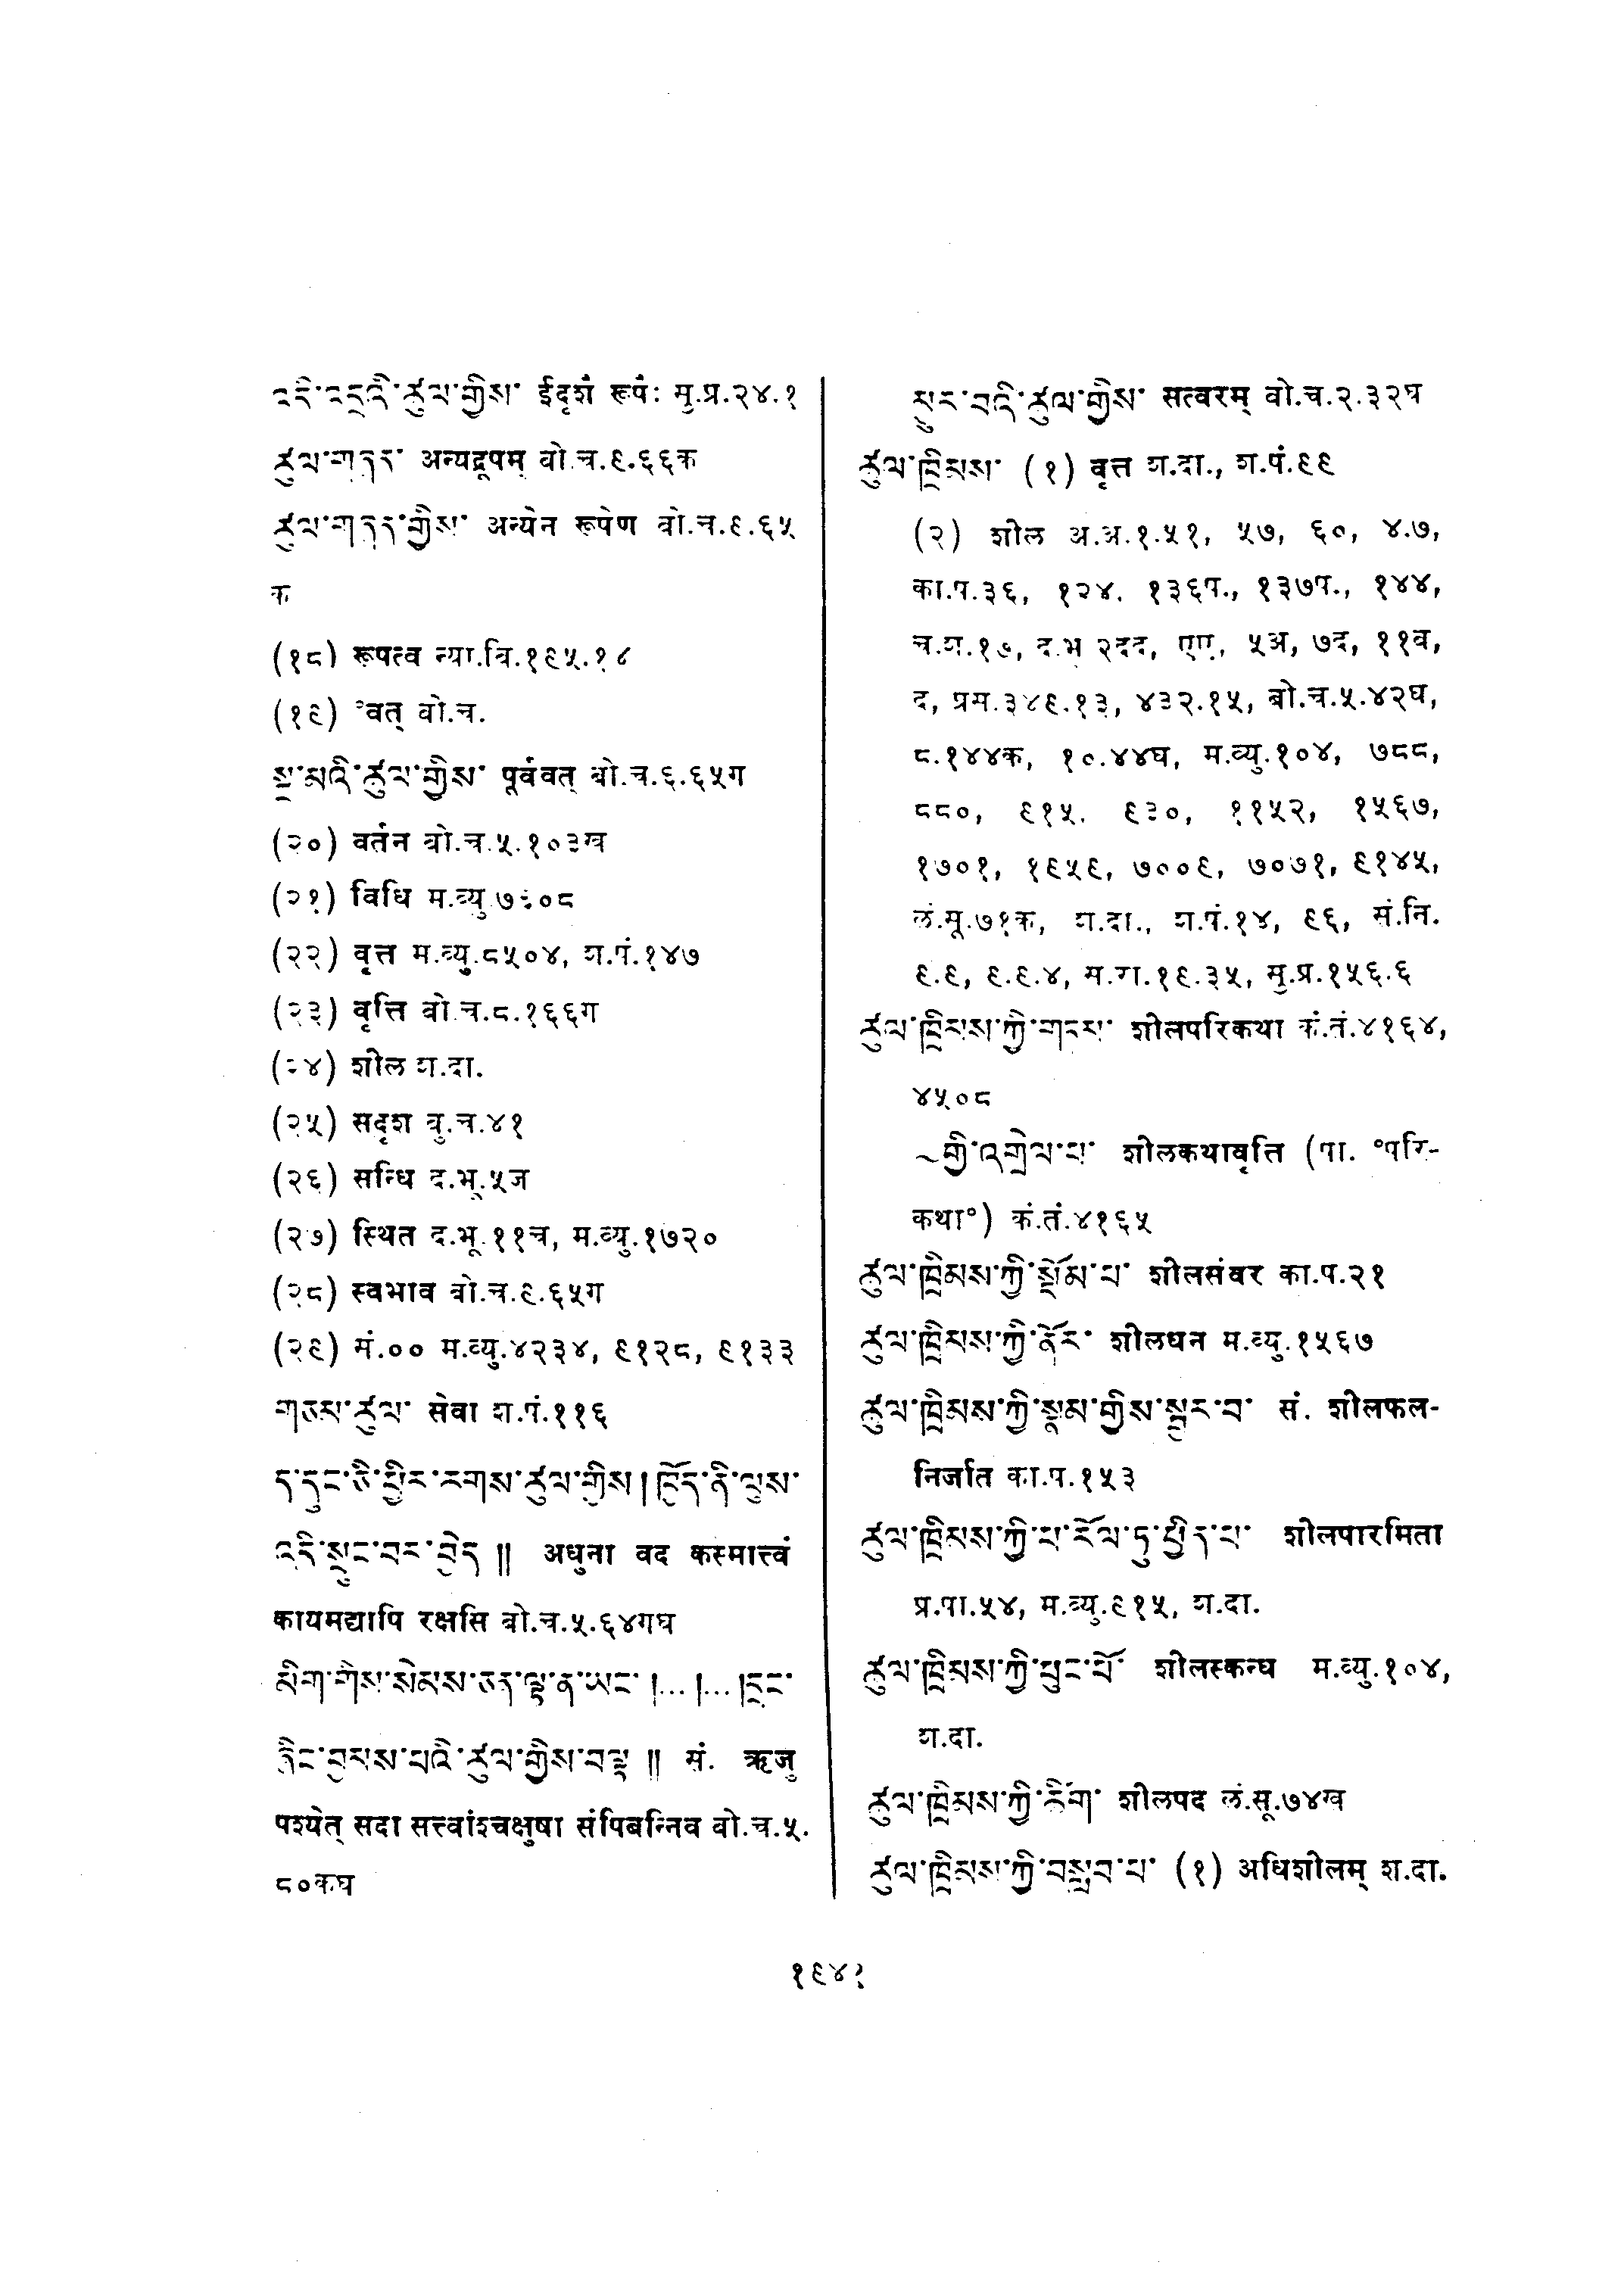 འདི་འདྲའི་ཚུལ་གྱིས་ ईदृशं रूपं: मु.प्र.२४.१
ཚུལ་གཞན་ अन्यद्रूपम् बो.च.९.६६क
ཚུལ་གཞན་གྱིས་ अन्येन रूपेण बो.च.९.६५
क
(१८) रूपत्व न्या.वि.१९५.१८
(१९) °वत् बो.च.
སྔ་མའི་ཚུལ་གྱིས་ पूर्ववत् बो.च.६.६५ग
(२०) वर्तन बो.च.५.१०३ख
(२१) विधि म.व्यु.७३०८
(२२) वृत्त म.व्यु.८५०४, श.पं.१४७
(२३) वृत्ति बो.च.८.१६६ग
(२४) शील श.दा.
(२५) सदृश बु.च.४१
(२६) सन्धि द.भू.५ज
(२७) स्थित द.भू.११च, म.व्यु.१७२०
(२८) स्वभाव बो.च.९.६५ग
(२९) सं.०० म.व्यु.४२३४, ९१२८, ९१३३
གཅས་ཚུལ་ सेवा श.पं.११६
ད་དུང་ཅི་ཕྱིར་རགས་ཚུལ་གྱིས། ཁྱོད་ནི་ལུས་
འདི་སྲུང་བར་བྱེད ॥ अधुना वद कस्मात्त्वं
कायमद्यापि रक्षसि बो.च.५.६४गघ
མིག་གིས་སེམས་ཅན་ལྟ་ན་ཡང་ །...།...།དྲང་
ཞིང་བྱམས་པའི་ཚུལ་གྱིས་བལྟ ॥ सं. ऋजु
पश्येत् सदा सत्त्वांश्चक्षुषा संपिबन्निव बो.च.५.
८०कघ
སྤུར་བའི་ཚུལ་གྱིས་ सत्वरम् बो.च.२.३२घ
ཚུལ་ཁྲིམས་ (१) वृत्त श.दा., श.पं.९९
(२) शील अ.अ.१.५१, ५७, ६०, ४.७,
का.प.३६, १२४, १३६प., १३७प., १४४,
च.श.१७, द.भू २दद, एए, ५अ, ७द, ११व,
द, प्रम.३४९.१३, ४३२.१५, बो.च.५.४२घ,
८.१४४क, १०.४४घ, म.व्यु.१०४, ७८८,
८८०, ९१५, ९३०, ११५२, १५६७,
१७०१, १९५९, ७००९, ७०७१, ९१४५,
लं.सू.७१क, श.दा., श.पं.१४, ९६, सं.नि.
९.९, ९.९.४, म.श.१९.३५, मु.प्र.१५६.६
ཚུལ་ཁྲིམས་ཀྱི་གཏམ་ शीलपरिकथा कं.तं.४१६४,
४५०८
~གྱི་འགྲེལ་པ་ शीलकथावृत्ति (पा. °परि-
कथा°) कं.तं.४१६५
ཚུལ་ཁྲིམས་ཀྱི་སྡོམ་པ་ शीलसंवर का.प.२१
ཚུལ་ཁྲིམས་ཀྱི་ནོར་ शीलधन म.व्यु.१५६७
ཚུལ་ཁྲིམས་ཀྱི་སྣམ་གྱིས་སྦྱང་བ་ सं. शीलफल-
निर्जात का.प.१५३
ཚུལ་ཁྲིམས་ཀྱི་ཕ་རོལ་ཏུ་ཕྱིན་པ་ शीलपारमिता
प्र.पा.५४, म.व्यु.९१५, श.दा.
ཚུལ་ཁྲིམས་ཀྱི་ཕུང་པོ་ शीलस्कन्ध म.व्यु.१०४,
श.दा.
ཚུལ་ཁྲིམས་ཀྱི་རིག་ शीलपद लं.सू.७४ख
ཚུལ་ཁྲིམས་ཀྱི་བསླབ་པ་ (१) अधिशीलम् श.दा.
१९४१